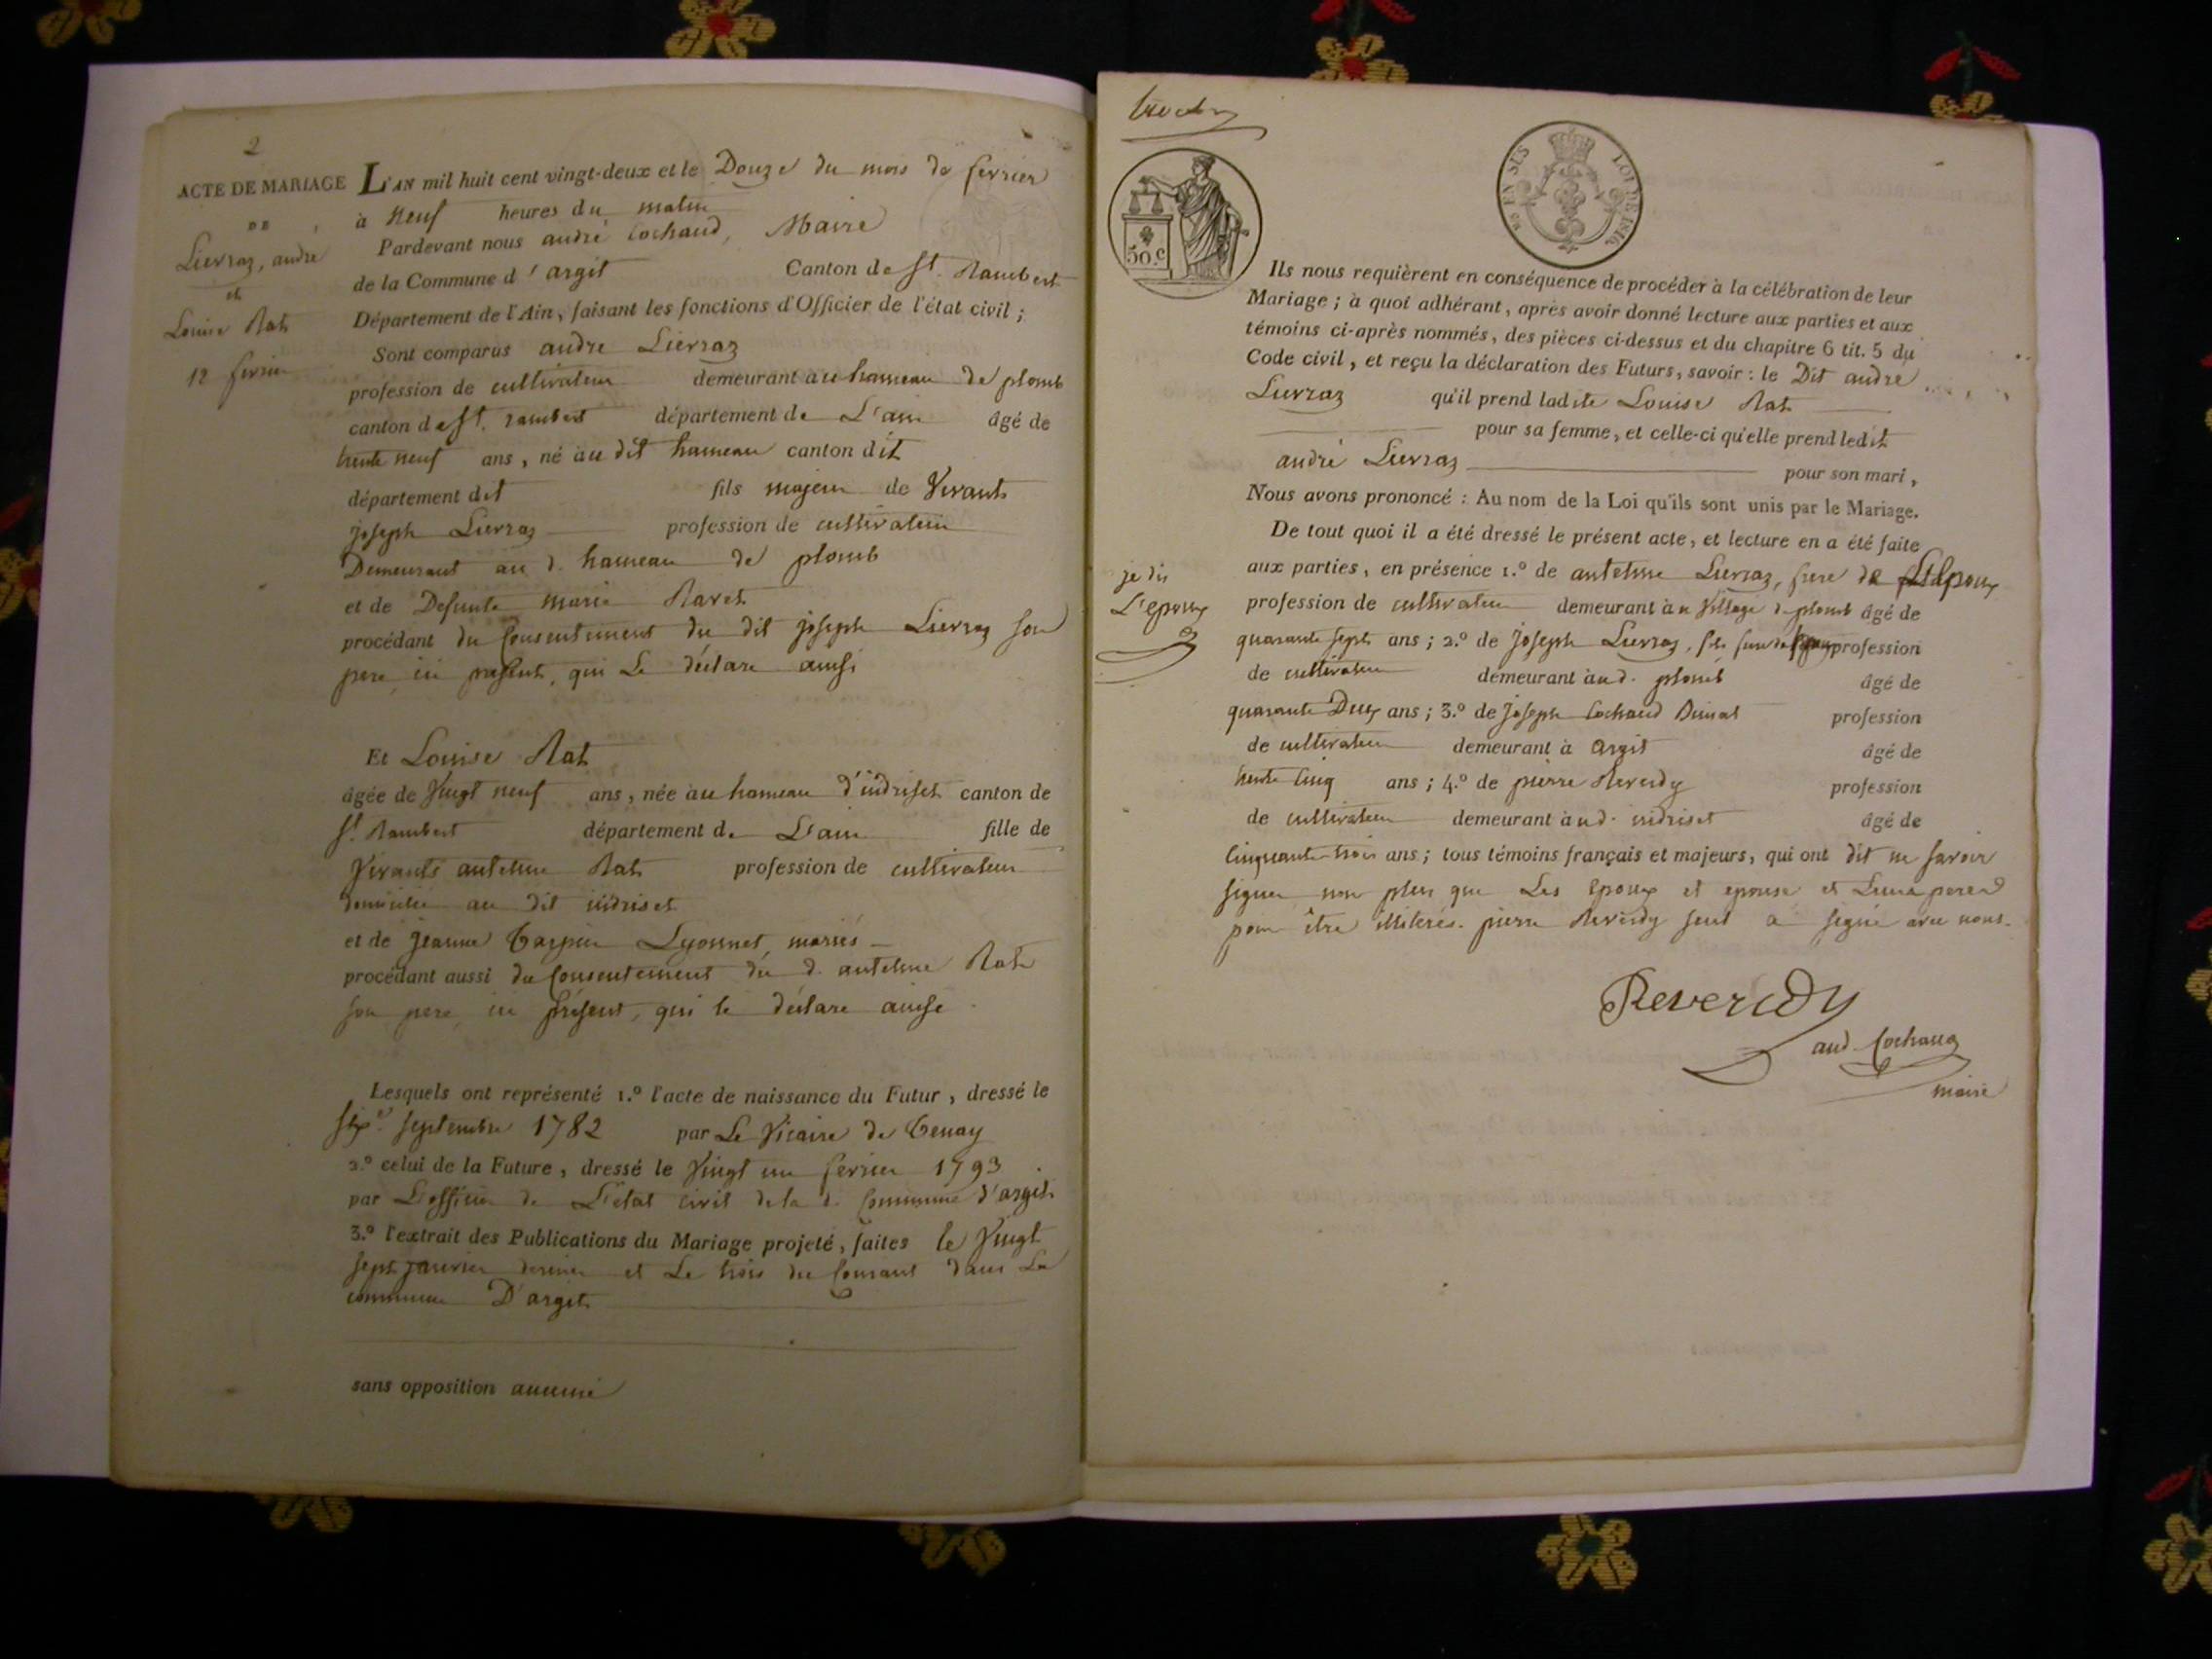 2
ACTE DE MARIAGE
DE
Lierraz, andré
et
Louise Rat
12 fevrier
L'AN mil huit cent vingt-deux et le Douze du mois de fevrier
à Neuf heures du matin
Pardevant nous andré Cochaud, Maire
de la Commune d'argit Canton de St. Rambert
Département de l'Ain, faisant les fonctions d'Officier de l'état civil ;
Sont comparus andre Lierraz
profession de cultivateur demeurant au hameau de plomb
canton de St. rambert département de L'ain âgé de
trente neuf ans, né au dit hameau canton dit
département dit fils majeur de Vivants
joseph Lierraz profession de cultivateur
Demeurant au d. hameau de plomb
et de Defunte marie Ravet
procédant du Consentement du dit joseph Lierraz son
pere ici present, qui Le déclare ainsi
Et Louise Rat
âgée de Vingt neuf ans, née au hameau d'indriset canton de
St. Rambert département de L'ain fille de
Vivants antelme Rat profession de cultivateur
domicilié au dit indriset
et de jeanne Carpin Lyonnet, mariés
procédant aussi du Consentement du d. antelme Rat
son pere ici présent, qui le déclare ainse
Lesquels ont représenté 1.º l'acte de naissance du Futur, dressé le
six septembre 1782 par Le Vicaire de Tenay
2.º celui de la Future, dressé le Vingt un fevrier 1793
par L'officier de L'état civil de la d. Commune d'argit
3.º l'extrait des Publications du Mariage projeté, faites le Vingt
sept janvier dernier et Le trois du Courant dans La
commune D'argit
sans opposition aucune
50.c
EN SUS
LOI DE 1816.
Ils nous requièrent en conséquence de procéder à la célébration de leur
Mariage ; à quoi adhérant, après avoir donné lecture aux parties et aux
témoins ci-après nommés, des pièces ci-dessus et du chapitre 6 tit. 5 du
Code civil, et reçu la déclaration des Futurs, savoir : le Dit andré
Lierraz qu'il prend ladite Louise Rat
pour sa femme, et celle-ci qu'elle prend ledit
andré Lierraz pour son mari,
Nous avons prononcé : Au nom de la Loi qu'ils sont unis par le Mariage.
De tout quoi il a été dressé le présent acte, et lecture en a été faite
aux parties, en présence 1.º de antelme Lierraz, frere de L'Epoux
je dis
L'epoux
profession de cultivateur demeurant au Village de plomb âgé de
quarante sept ans ; 2.º de joseph Lierraz, profession
de cultivateur demeurant au d. plomb âgé de
quarante Deux ans ; 3.º de joseph Cochaud profession
de cultivateur demeurant à argit âgé de
trente Cinq ans ; 4.º de pierre Reverdy profession
de cultivateur demeurant au d. indriset âgé de
Cinquante trois ans ; tous témoins français et majeurs, qui ont dit ne savoir
signer non plus que Les Epoux et epouse et Leurs peres
pour être illiterés. pierre Reverdy seul a signé avec nous.
Reverdy
and. Cochaud
maire